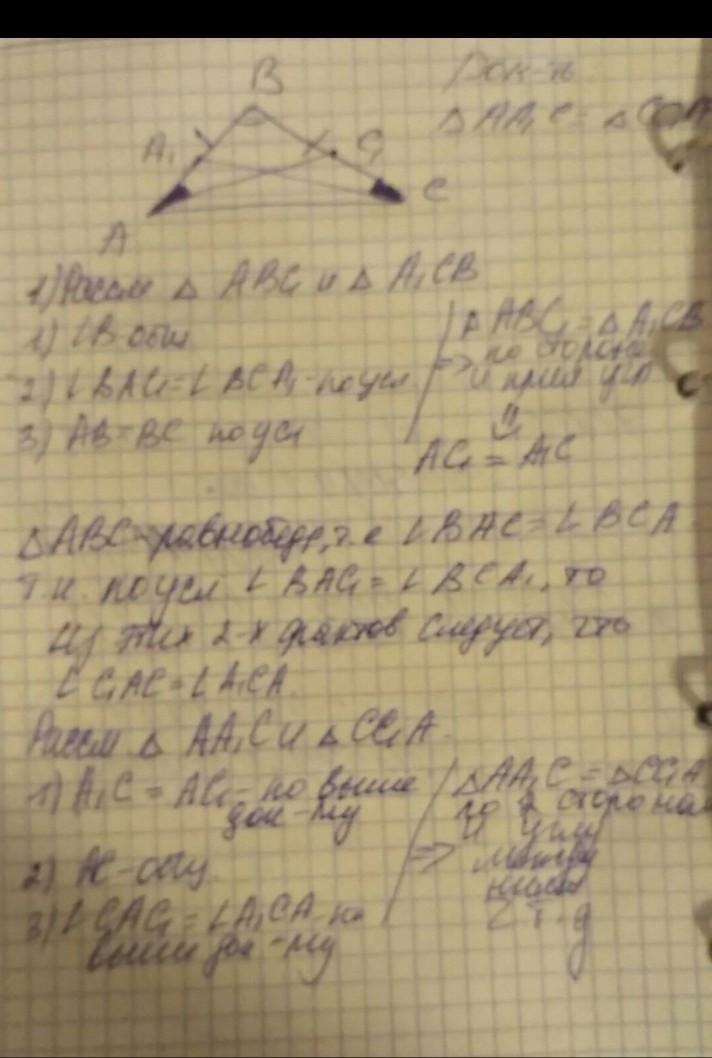 B
Док-ть
△ AA₁C = △ CC₁A
A₁
C₁
C
A
1) Рассм △ ABC₁ и △ A₁CB
1) ∠B общ
2) ∠BAC₁ = ∠BCA₁ - по усл
3) AB = BC по усл
⇒ △ ABC₁ = △ A₁CB
по стороне
и прил угл
⇓
AC₁ = A₁C
△ABC - равнобедр, т.е ∠BAC = ∠BCA
т.к. по усл ∠BAC₁ = ∠BCA₁, то
из этих 2-х фактов следует, что
∠C₁AC = ∠A₁CA.
Рассм △ AA₁C и △ CC₁A
1) A₁C = AC₁ - по выше
док-му
2) AC - общ
3) ∠CAC₁ = ∠A₁CA - по
выше док-му
⇒ △AA₁C = △CC₁A
по 2 сторонам
и углу
между
ними
Ч.т.д